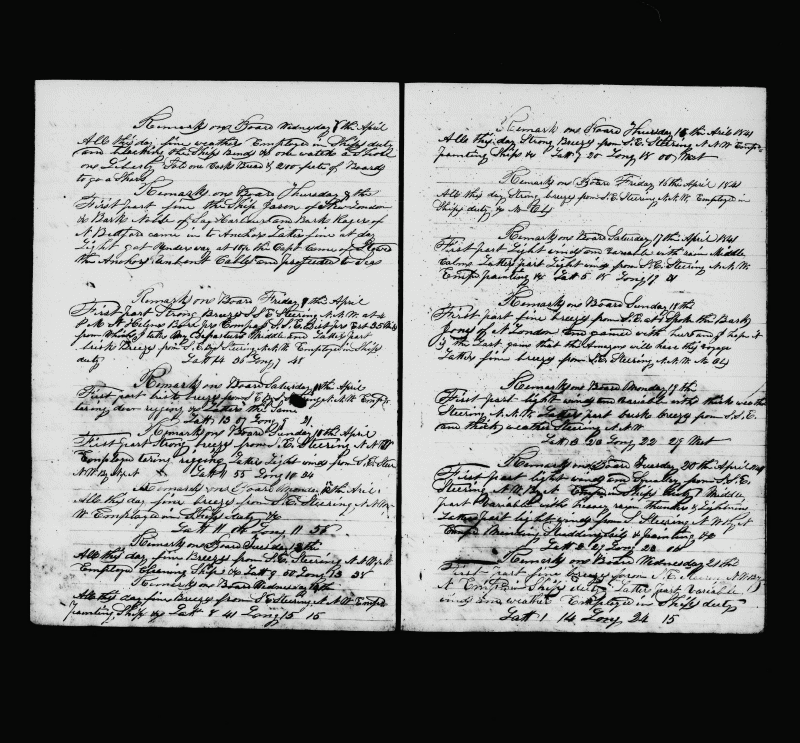 Remark on Board Wednesday 7th April
All this day fine weather Employed in Ships duty
and the Ships and one watch a Shore
on Liberty Got one Cask Bread & 200 feet of Boards
to go a Shore
Remarks on Board Thursday 8 the
First part fine the Ship Jason of New London
& Bark Noble of Sag Harbour and Bark Roger of
N Bedford came in to Anchor Later fine at day
Light got underway at 10 the Capt Came of
the Anchor and proceeded to Sea
Remark on Board Friday 9th April
First part Strong Breeze S.S.E Steering N.N.W. at 4
P.M St Helena Bore per Compass S.S.E. Dist per Est 35 Miles
from Which I take my departure Middle and Later part
brisk Breeze from S.E. Steering N.N.W Employed in Ships
duty Latt 14 35 Long 7 48
Remark on Board Saturday 10th April
First part brisk breeze from E.S.E. Steering N.N.W. Emp
taring down rigging & Later the Same
Latt 13 07 Long 8 21
Remark on Board Sunday 11th April
First part Strong breeze from S.E. Steering N.N.W
Employed taring rigging Later Light winds from S.E. Steer
N.W. By N & Latt 11 55 Long 10 34
Remarks on Board Monday 12th April
All this day fine breeze from S.E. Steering N.N.W
W Employed in Ships duty &c
Latt 11 06 Long 11 55
Remark on Board Tuesday 13th
All this day fine Breeze from S.E. Steering N.W By N
Employed Cleaning Ship & Latt 9 50 Long 13 35
Remark on Board Wednesday 14th
All this day fine Breeze from S.E Steering N.N.W Emp
painting Ship & Latt 8 41 Long 15 15
Remark on Board Thursday 15 th April 1841
All this day Strong Breeze from S.E. Steering N.N.W Emp
painting Ship & Latt 7 20 Long 18 00 West
Remarks on Board Friday 16th April 1841
All this day Strong breeze from S.E. Steering N.N.W. Employed in
Ships duty & No Obs
Remark on Board Saturday 17th April 1841
First part Light winds and variable with rain Middle
Calm Later part Light winds from S.E. Steering N.N.W.
Emp painting & Latt 5 18 Long 17 21
Remark on Board Sunday 18th
First part fine breeze from S.E. at 7 Spoke the Bark
of N London and gamed with her and hope it
is the Last gam that the will have this voyage
Later fine breeze from S.E. Steering N.N.W. No Obs
Remark on Board Monday 19 th
First part Light winds and variable with thick weather
Steering N.N.W. Later part brisk breeze from S.S.E.
and thick weather Steering N.W
Latt 3 20 Long 22 29 West
Remark on Board Tuesday 20 th April 1841
First part Light winds and Squaley from S.S.E.
Steering N.W By N Emp in Ships duty Middle
part Variable with heavy rain thunder & Lightning
Later part Light winds from S. Steering N.W By N
Emp Mending Studdingsails & painting &c
Latt 2 27 Long 23 04
Remark on Board Wednesday 21 th
First part fine Breeze from S.E. Steering N.W By
N Emp in Ships duty Later part Variable
winds and weather Employed in Ships duty
Latt 1 14 Long 24 15